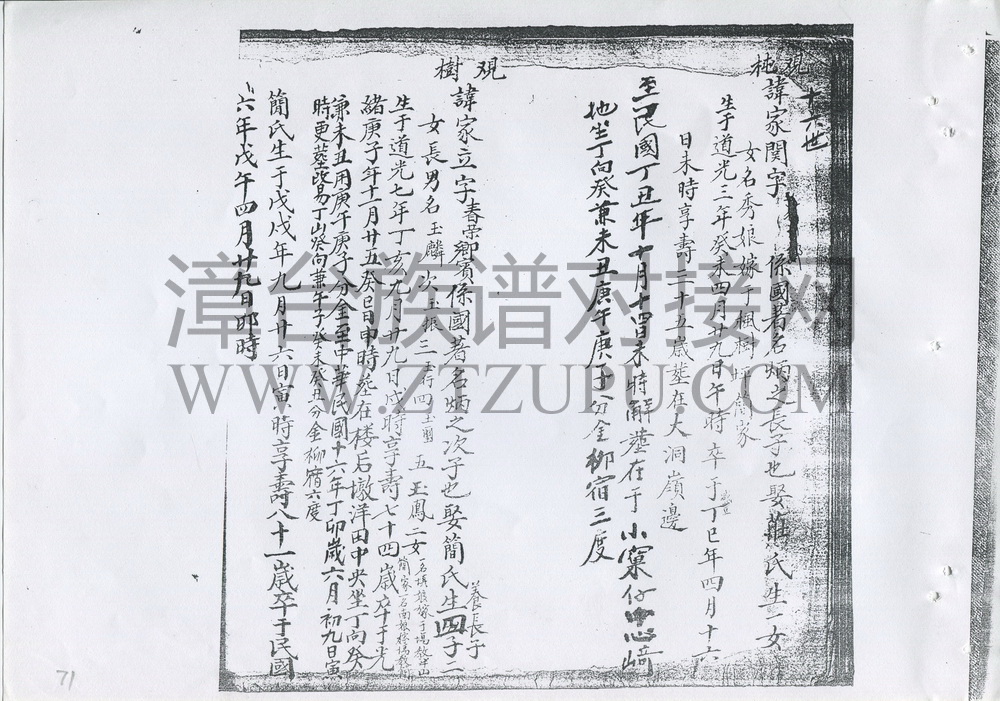 十六世
觀
諱家関字 係國著名炳之長子也娶莊氏生一女
女名秀娘嫁于楓樹坪簡家
生于道光三年癸未四月廿九日午時 卒于丁巳年四月十六
日未時享壽三十五歲塟在大洞嶺邊
至民國丁丑年十月十四日未時解塟在于小窠仔中心崎
地坐丁向癸兼未丑庚午庚子分金柳宿三度
觀樹
諱家立字春榮鄉賓係國著名炳之次子也娶簡氏生四子二
養長子
女長男名玉麟次玉振三 四 五玉鳳二女
生于道光七年丁亥九月廿九日戌時享壽七十四歲卒于光
緒庚子年十一月廿五癸巳日申時塟在楼后墩洋田中央坐丁向癸
兼未丑用庚午庚子分金至中華民國十六年丁卯歲六月初九日寅
時更塟改易丁山癸向兼午子癸未癸丑分金柳宿六度
簡氏生于戊戌年九月廿六日寅時享壽八十一歲卒于民國
六年戊午四月廿九日卯時
漳台族谱对接网
WWW.ZTZUPU.COM
71